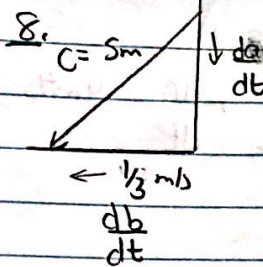 8.
C= 5m
↓ da
dt
← 1/3 m/s
db
dt